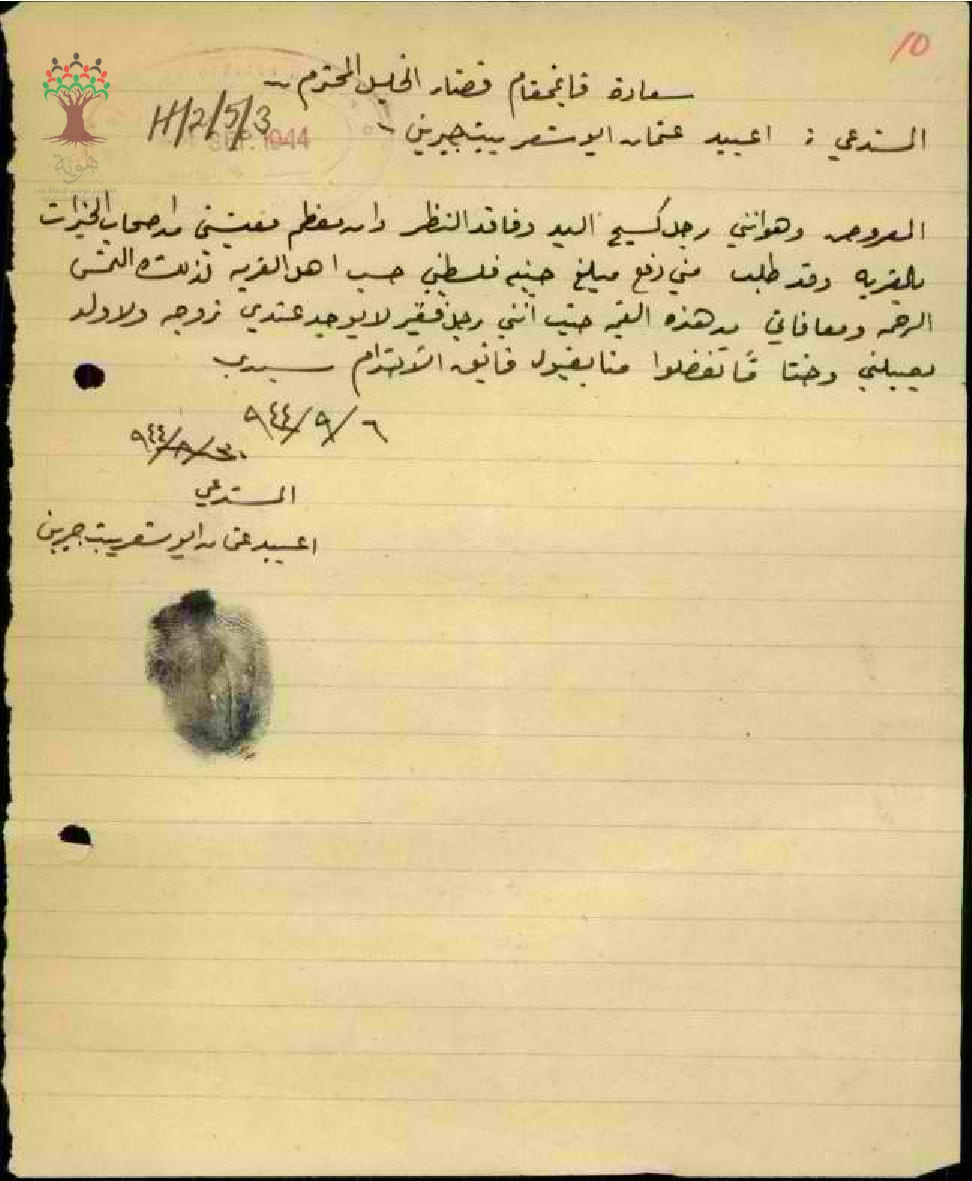 10
سعادة قايمقام قضاء الخليل المحترم
H/2/5/3
SEP. 1944
المستدعي : اعبيد عثمان ابو شعر بيت جبرين
المعروض وهو انني رجل كسيح اليد وفاقد النظر وان معظم معيشتي من اصحاب الخيرات
بالقريه وقد طلب مني دفع مبلغ جنيه فلسطيني حسب اهل القريه لذلك التمس
الرحمه ومعافاتي من هذه القيمه حيث انني رجل فقير لا يوجد عندي زوجه ولا ولد
يعيلني وختاماً تفضلوا منا بقبول فائق الاحترام سيدي
٦/٩/٩٤٤
٣٠/٨/٩٤٤
المستدعي
اعبيد عثمان ابو شعر بيت جبرين
هوية